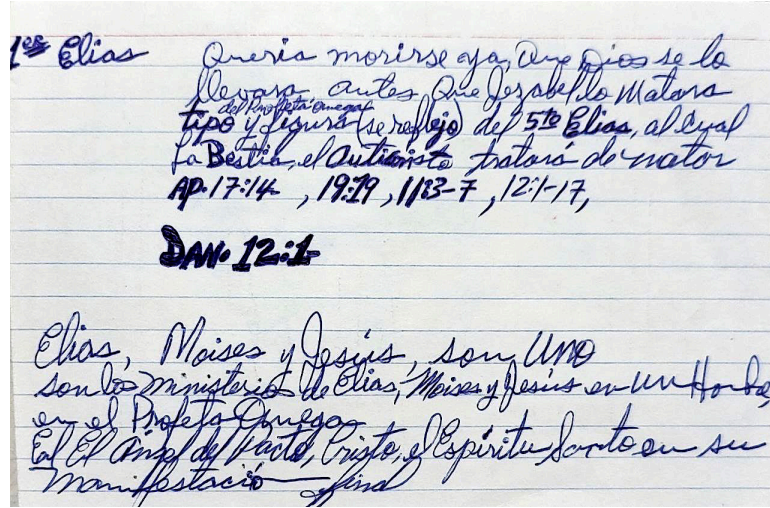 1er Elias Queria morirse ya, Que Dios se lo
llevara, antes, Que Jezabel lo Matara
del Profeta Omega
tipo y figura (se reflejo) del 5to Elias, al Cual
La Bestia, el Anticristo tratará de matar
AP. 17:14 , 19:19 , 11:3-7 , 12:1-17,
DAN. 12:1-
Elias, Moises y Jesús, son UNO
son los ministerios de Elias, Moises y Jesús en un Hombre,
en el Profeta Omega
El Angel del Pacto, Cristo, el Espíritu Santo en su
manifestación final